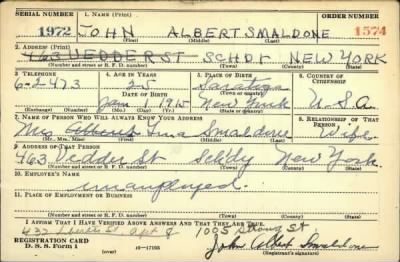 SERIAL NUMBER 1. NAME (Print) ORDER NUMBER
1972 JOHN ALBERT SMALDONE 1574
(First) (Middle) (Last)
2. ADDRESS (Print)
463 VEDDER ST SCHDY NEW YORK
(Number and street or R. F. D. number) (Town) (County) (State)
3. TELEPHONE 4. AGE IN YEARS 5. PLACE OF BIRTH 6. COUNTRY OF CITIZENSHIP
6-2473 25 Saratoga
(Town or county)
DATE OF BIRTH
Jan 1 1915 New York U.S.A.
(Exchange) (Number) (Mo.) (Day) (Yr.) (State or country)
7. NAME OF PERSON WHO WILL ALWAYS KNOW YOUR ADDRESS 8. RELATIONSHIP OF THAT PERSON
Mrs Smaldone Wife
(Mr., Mrs., Miss) (First) (Middle) (Last)
9. ADDRESS OF THAT PERSON
463 Vedder St Schdy New York
(Number and street or R. F. D. number) (Town) (County) (State)
10. EMPLOYER'S NAME
unemployed.
11. PLACE OF EMPLOYMENT OR BUSINESS
(Number and street or R. F. D. number) (Town) (County) (State)
I AFFIRM THAT I HAVE VERIFIED ABOVE ANSWERS AND THAT THEY ARE TRUE.
432 Liberty St Apt 8 1005 Strong St
REGISTRATION CARD
D. S. S. Form 1 16—17105 John Albert Smaldone
(Registrant's signature)